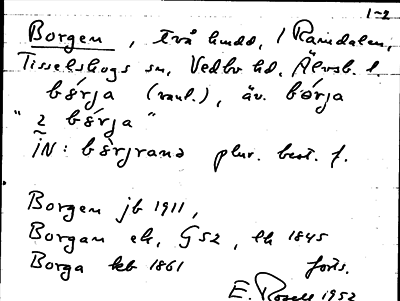 1-2
Borgen, två hmdd, i Ramdalen,
Tisselskogs sn, Vedbo hd, Älvsb. l
börja (vanl.), äv. börja
"2 börja"
iN: börjrana plur. best. f.
Borgen jb 1911,
Borgan ek, G52, lk 1845
Borga kb 1861 forts.
E. Rosell 1952